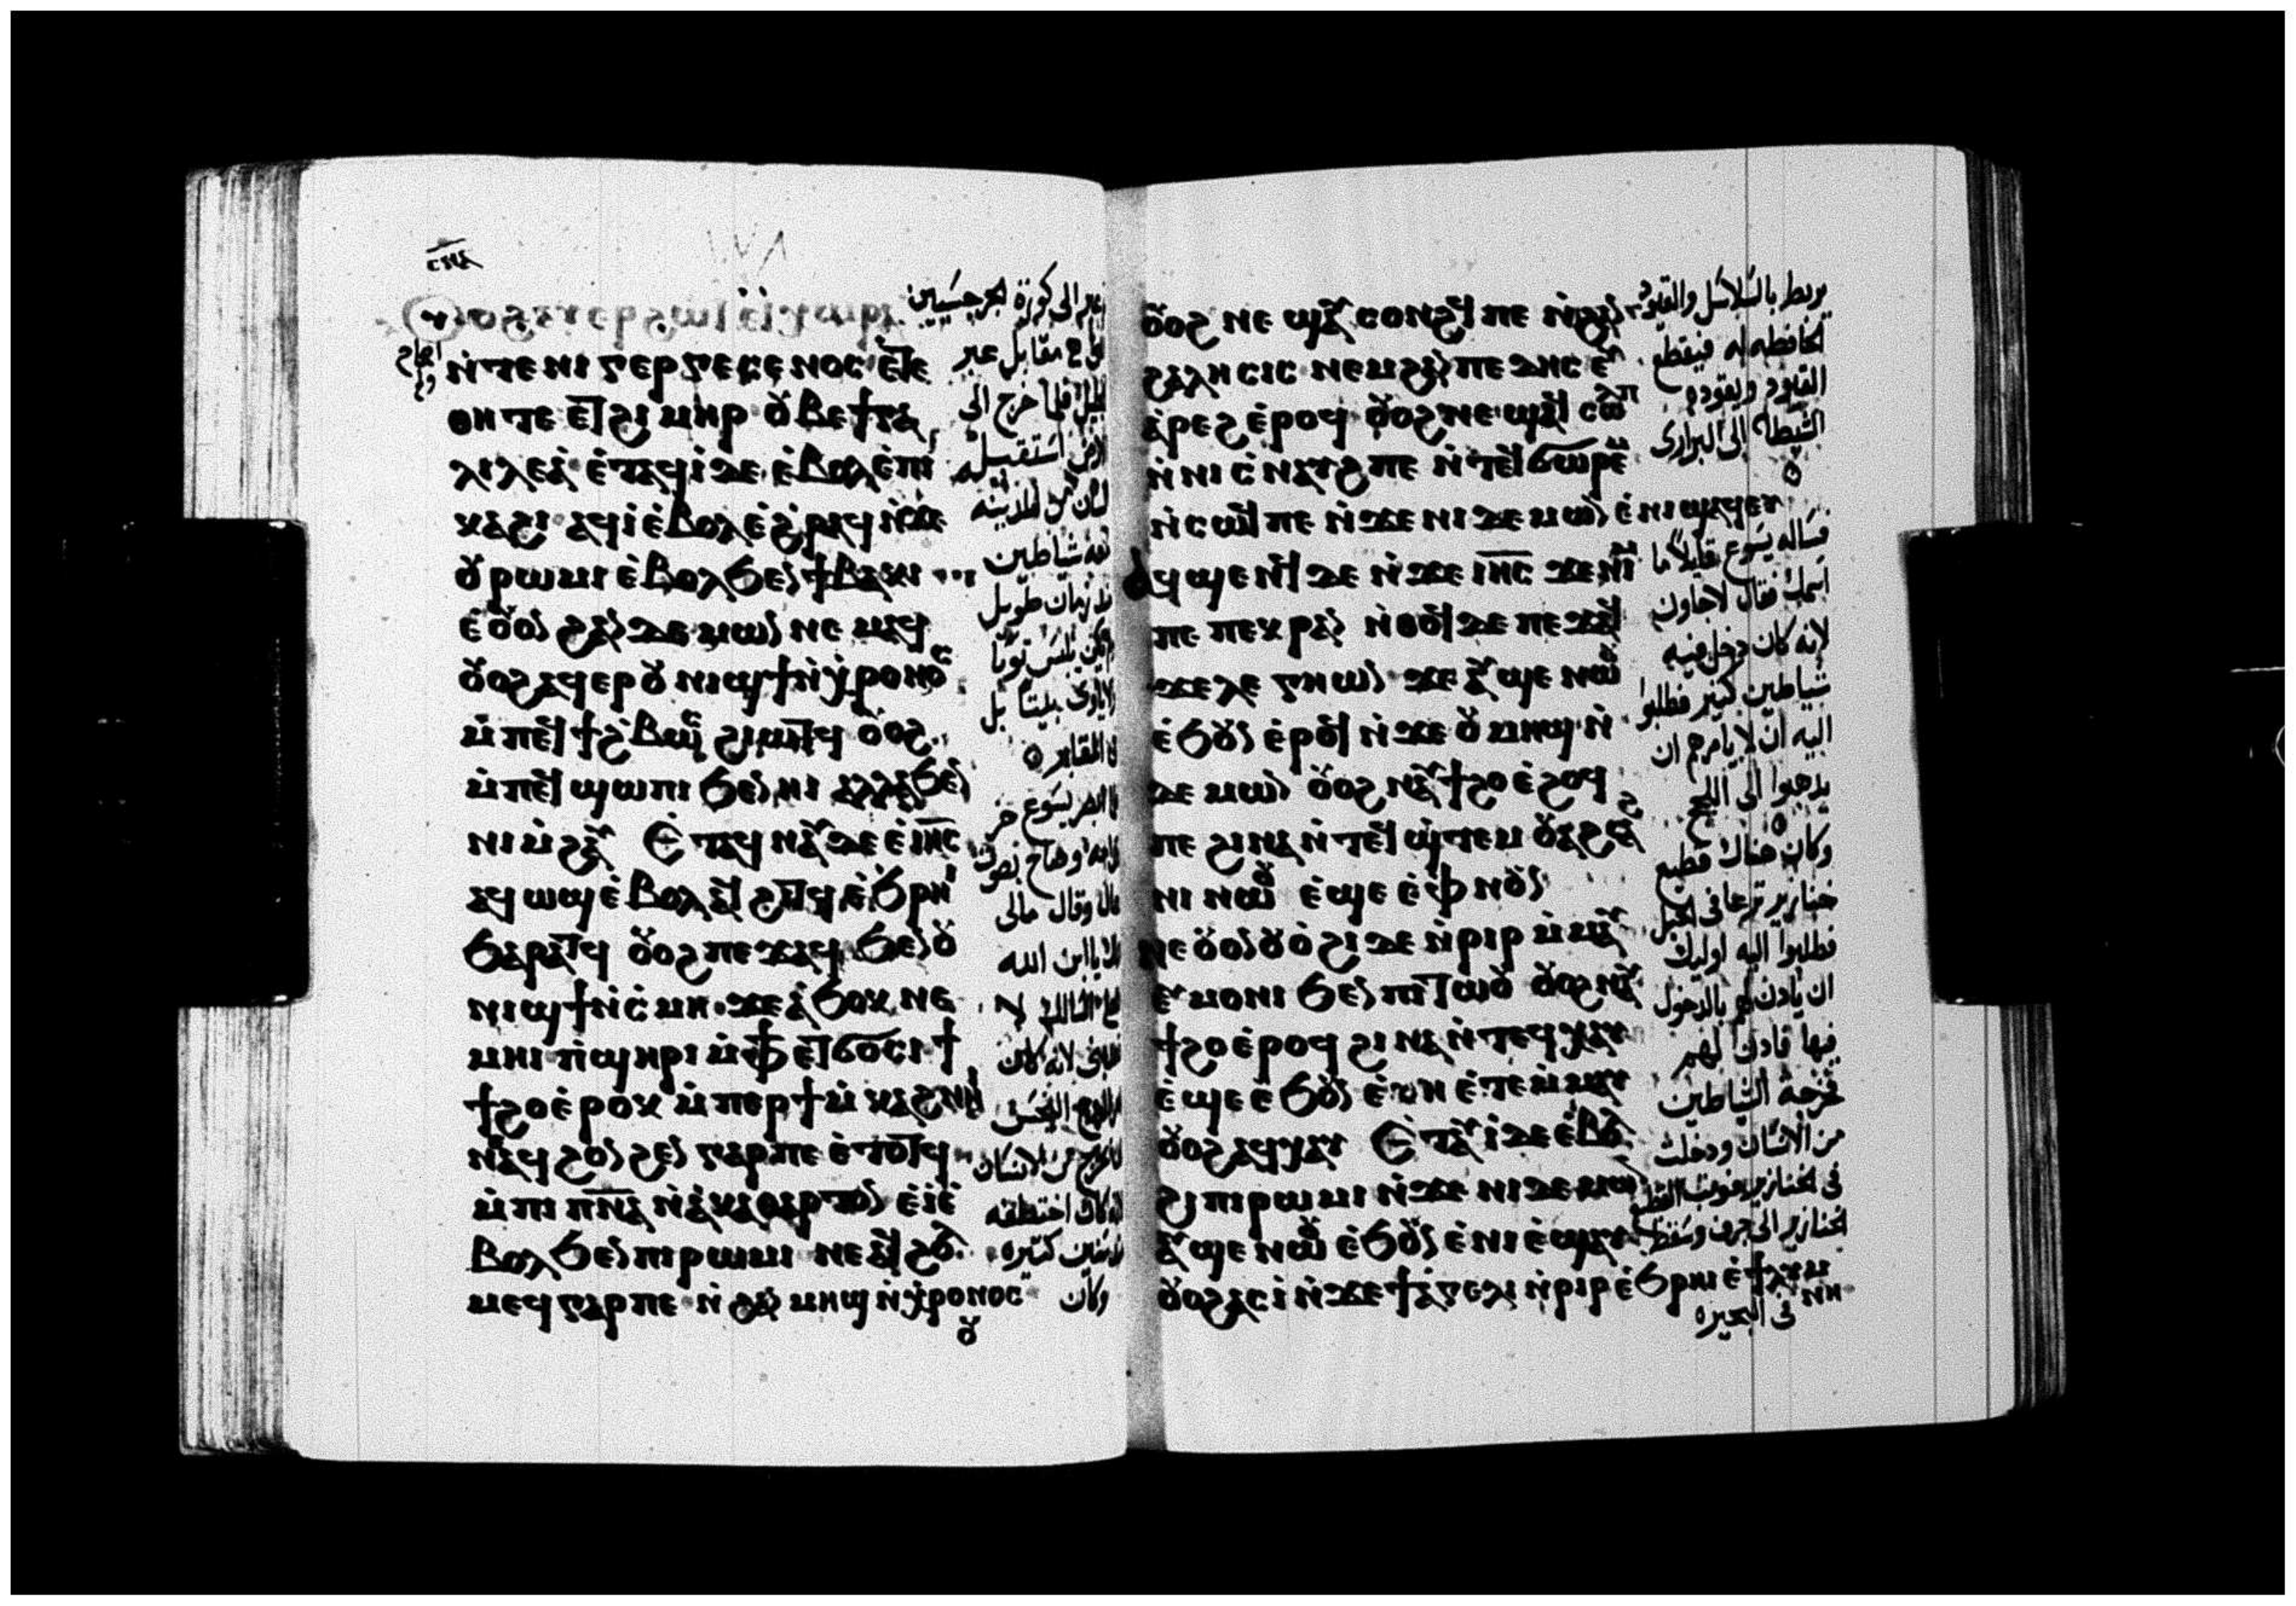 ⲥⲙⲁ
ⲟⲩⲟϩ ⲁⲩⲉⲣϩⲱⲧ ⲉ̀ϯⲭⲱⲣⲁ
ⲛ̀ⲧⲉ ⲛⲓⲅⲉⲣⲅⲉⲥⲉⲛⲟⲥ ⲉ̀ⲧⲉ
ⲑⲏ ⲧⲉ ⲉⲧϩⲓⲙⲏⲣ ⲟⲩⲃⲉ ϯⲅⲁ
ⲗⲓⲗⲉⲁ̀ ⲉ̀ⲧⲁϥⲓ̀ ⲇⲉ ⲉ̀ⲃⲟⲗ ⲉ̀ⲡⲓ
ⲭⲁϩⲓ ⲁϥⲓ̀ ⲉ̀ⲃⲟⲗ ⲉ̀ϩⲣⲁϥ ⲛ̀ϫⲉ
ⲟⲩⲣⲱⲙⲓ ⲉ̀ⲃⲟⲗ ϧⲉⲛ ϯⲃⲁⲕⲓ
ⲉ̀ⲟⲩⲟⲛ ϩⲁⲛⲇⲉⲙⲱⲛ ⲛⲉⲙⲁϥ
ⲟⲩⲟϩ ⲁϥⲉⲣ ⲟⲩⲛⲓϣϯ ⲛ̀ⲭⲣⲟⲛⲟⲥ
ⲙ̀ⲡⲉϥϯ ϩ̀ⲃⲱⲥ ϩⲓⲱⲧϥ ⲟⲩⲟϩ
ⲙ̀ⲡⲉϥϣⲱⲡⲓ ϧⲉⲛ ⲛⲓ ⲁⲗⲗⲁ ϧⲉⲛ
ⲛⲓⲙ̀ϩⲁⲩ Ⲉ̀ⲧⲁϥⲛⲁⲩ ⲇⲉ ⲉ̀ⲓⲏⲥ
ⲁϥⲱϣ ⲉ̀ⲃⲟⲗ ⲁϥϩⲓⲧϥ ⲉ̀ϧⲣⲏⲓ
ϧⲁⲣⲁⲧϥ ⲟⲩⲟϩ ⲡⲉϫⲁϥ ϧⲉⲛ ⲟⲩ
ⲛⲓϣϯ ⲛ̀ⲥ̀ⲙⲏ ϫⲉ ⲁ̀ϧⲟⲕ ⲛⲉ
ⲙⲏⲓ ⲡ̀ϣⲏⲣⲓ ⲙ̀ⲫϯ ⲉⲧϭⲟⲥⲓ ϯ
ϯϩⲟ ⲉ̀ⲣⲟⲕ ⲙ̀ⲡⲉⲣϯⲙ̀ⲕⲁϩ ⲛⲏⲓ
ⲛⲁϥϩⲟⲛϩⲉⲛ ⲅⲁⲣ ⲡⲉ ⲉ̀ⲧⲟⲧϥ
ⲙ̀ⲡⲓⲡⲛⲁ ⲛ̀ⲁ̀ⲕⲁⲑⲁⲣⲧⲟⲛ ⲉ̀ⲓ̀ ⲉ̀
ⲃⲟⲗ ϧⲉⲛ ⲡⲓⲣⲱⲙⲓ ⲛⲉ ⲁϥϩⲟⲗ
ⲙⲉϥ ⲅⲁⲣ ⲡⲉ ⲛ̀ϩⲁⲛⲙⲏϣ ⲛ̀ⲭⲣⲟⲛⲟⲥ
ⲟⲩ
الى كورة الجرجسيين
مقابل عبر
فلما خرج الى
الارض استقبله
من المدينة
معه شياطين
زمان طويل
يلبس ثوبا
بيتا بل
المقابر
ابصر يسوع خر
وصاح بصوت
وقال مالى
يا ابن الله
لانه كان
النجس
من الانسان
اختطفه
سنين كثيره
وكان
ⲟⲩⲟϩ ⲛⲉ ϣⲁⲩⲥⲟⲛϩϥ ⲡⲉ ⲛ̀ϩⲁⲛ
ϩⲁⲗⲏⲥⲓⲥ ⲛⲉⲙ ϩⲁⲛⲡⲉⲇⲏⲥ ⲉⲩ
ⲁ̀ⲣⲉϩ ⲉ̀ⲣⲟϥ ⲟⲩⲟϩ ⲛⲉ ϣⲁϥⲥⲱⲗⲡ
ⲛ̀ⲛⲓⲥ̀ⲛⲁⲩϩ ⲡⲉ ⲛ̀ⲧⲟⲩϭⲱⲣⲉⲙ
ⲛ̀ⲥⲱϥ ⲡⲉ ⲛ̀ϫⲉ ⲛⲓⲇⲉⲙⲱⲛ ⲉ̀ⲛⲓϣⲁϥⲉⲩ
ⲁϥϣⲉⲛϥ ⲇⲉ ⲛ̀ϫⲉ ⲓⲏⲥ ϫⲉ ⲛⲓⲙ
ⲡⲉ ⲡⲉⲕⲣⲁⲛ ⲛ̀ⲑⲟϥ ⲇⲉ ⲡⲉϫⲁϥ
ϫⲉ ⲗⲉⲅⲏⲱⲛ ϫⲉ ⲁⲩϣⲉⲛⲱⲟⲩ
ⲉ̀ϧⲟⲩⲛ ⲉ̀ⲣⲟϥ ⲛ̀ϫⲉ ⲟⲩⲙⲏϣ ⲛ̀
ⲇⲉⲙⲱⲛ ⲟⲩⲟϩ ⲛⲁⲩϯϩⲟ ⲉ̀ⲣⲟϥ
ⲡⲉ ϩⲓⲛⲁ ⲛ̀ⲧⲉϥϣ̀ⲧⲉⲙⲟⲩⲁϩⲥⲁϩ
ⲛⲓ ⲛⲱⲟⲩ ⲉ̀ϣⲉ ⲉ̀ⲫ̀ⲛⲟⲩⲛ
ⲛⲉ ⲟⲩⲟⲛ ⲟⲩⲟ̀ϩⲓ ⲇⲉ ⲛ̀ⲣⲓⲣ ⲙ̀ⲙⲁⲩ
ⲉⲩⲙⲟⲛⲓ ϧⲉⲛ ⲡⲓⲧⲱⲟⲩ ⲟⲩⲟϩ ⲛⲁⲩ
ϯϩⲟ ⲉ̀ⲣⲟϥ ϩⲓⲛⲁ ⲛ̀ⲧⲉϥⲭⲁⲩ
ⲉ̀ϣⲉ ⲉ̀ϧⲟⲩⲛ ⲉ̀ⲛⲏ ⲉ̀ⲧⲉⲙ̀ⲙⲁⲩ
ⲟⲩⲟϩ ⲁϥⲭⲁⲩ Ⲉ̀ⲧⲁⲩⲓ̀ ⲇⲉ ⲉ̀ⲃⲟⲗ
ϩⲓ ⲡⲓⲣⲱⲙⲓ ⲛ̀ϫⲉ ⲛⲓⲇⲉⲙⲱⲛ
ⲁⲩϣⲉⲛⲱⲟⲩ ⲉ̀ϧⲟⲩⲛ ⲉ̀ⲛⲓⲉ̀ϣⲁⲩ
ⲟⲩⲟϩ ⲁⲥⲓ̀ ⲛ̀ϫⲉ ϯⲁ̀ⲅⲉⲗⲓ ⲛ̀ⲣⲓⲣ ⲉ̀ϧⲣⲏⲓ ⲉ̀ϯⲗⲩⲙ
ⲛⲏ
يربط بالسلاسل والقيود
الحافظه له فيقطع
القيود ويقوده
الشيطان الى البرارى
فساله يسوع قايلا ما
اسمك فقال لاجاون
لانه كان دخل فيه
شياطين كثير فطلبوا
اليه ان لا يامرهم ان
يذهبوا الى اللجج
وكان هناك قطيع
خنازير ترعا فى الجبل
فطلبوا اليه اوليك
ان ياذن لهم بالدخول
فيها فاذن لهم
فخرجة الشياطين
من الانسان ودخلت
فى الخنازير فوثب القطيع
الخنازير الى جرف وسقط
فى البحيره